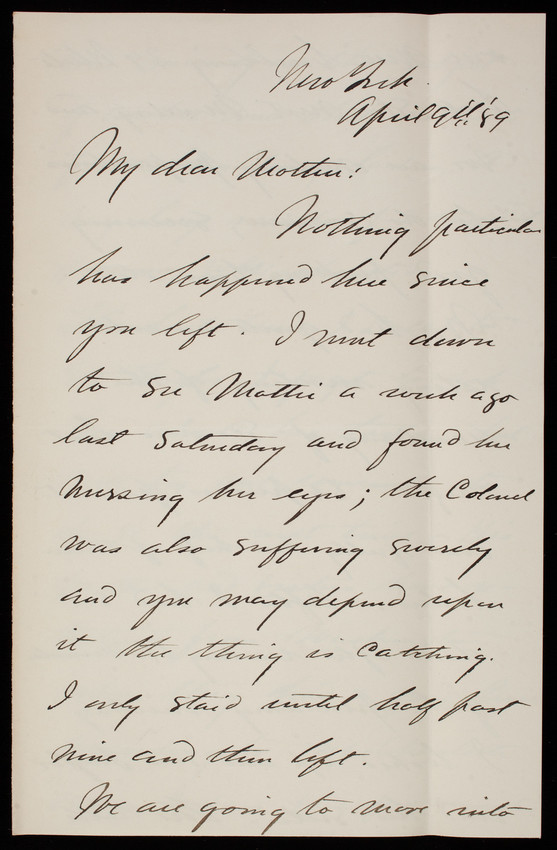 New York.
April 9th '89
My dear Mother:
Nothing particular
has happened here since
you left. I went down
to see Mattie a week ago
last Saturday and found her
nursing her eyes; the Colonel
was also suffering severely
and you may depend upon
it the thing is catching.
I only staid until half past
nine and then left.
We are going to move into